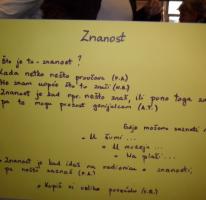 Znanost
Što je to - znanost?
Kada netko nešto proučava (P.A.)
Ne znam uopće što to znači (N.D.)
Znanost je kad npr. nešto znaš, ili puno toga znaš
pa te mogu prozvat genijalcem (A.T.)
Gdje možemo saznati
U šumi...
U muzeju...
Na plaži...
Znanost je kad ideš na radionicu o znanosti,
pa nešto saznaš
Kupiš si veliku